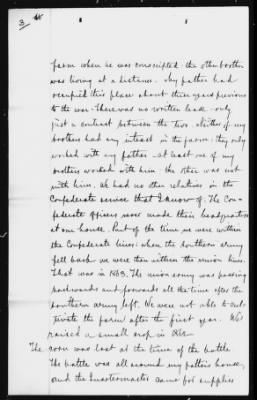 3
farm when he was conscripted - the other brother
was living at a distance. My father had
occupied this place about three years previous
to the war. There was no written lease - only
just a contract between the two. Neither of my
brothers had any interest in the farm; they only
worked with my father - at least one of my
brothers worked with him - the other was not
with him. We had no other relatives in the
Confederate service that I know of. The Con-
federate officers never made their headquarters
at our house. Part of the time we were within
the Confederate lines; when the southern army
fell back we were then within the union lines.
That was in 1863. The union army was passing
backwards and forwards all the time after the
southern army left. We were not able to cul-
tivate the farm after the first year. We
raised a small crop in 1862
The corn was lost at the time of the battle
The battle was all around my father's house,
and the quartermaster came for supplies